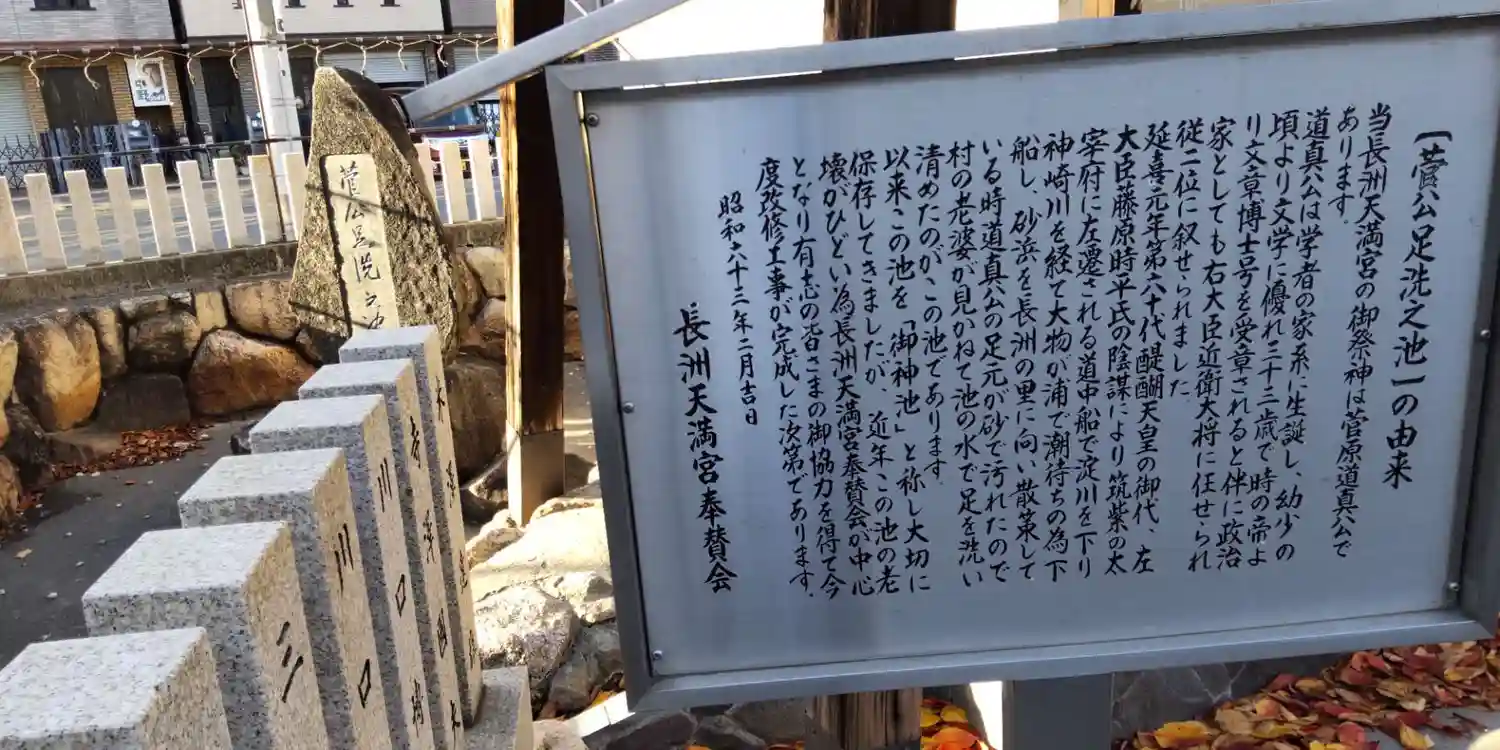 〔菅公足洗之池〕の由来
当長洲天満宮の御祭神は菅原道真公で
あります.
道真公は学者の家系に生誕し、幼少の
頃より文学に優れ三十三歳で時の帝よ
り文章博士号を受章されると伴に政治
家としても右大臣近衛大将に任せられ
従二位に叙せられました.
延喜元年第六十代醍醐天皇の御代、左
大臣藤原時平氏の陰謀により筑紫の太
宰府に左遷される道中船で淀川を下り
神崎川を経て大物が浦で潮待ちの為下
船し、砂浜を長洲の里に向い散策して
いる時道真公の足元が砂で汚れたので
村の老婆が見かねて池の水で足を洗い
清めたのがこの池であります.
以来この池を「御神池」と称し大切に
保存してきましたが、近年この池の老
壊がひどい為長洲天満宮奉賛会が中心
となり有志の皆さまの御協力を得て今
度改修工事が完成した次第であります.
昭和六十三年二月吉日
長洲天満宮奉賛会
菅公足洗之池
川口
川
三